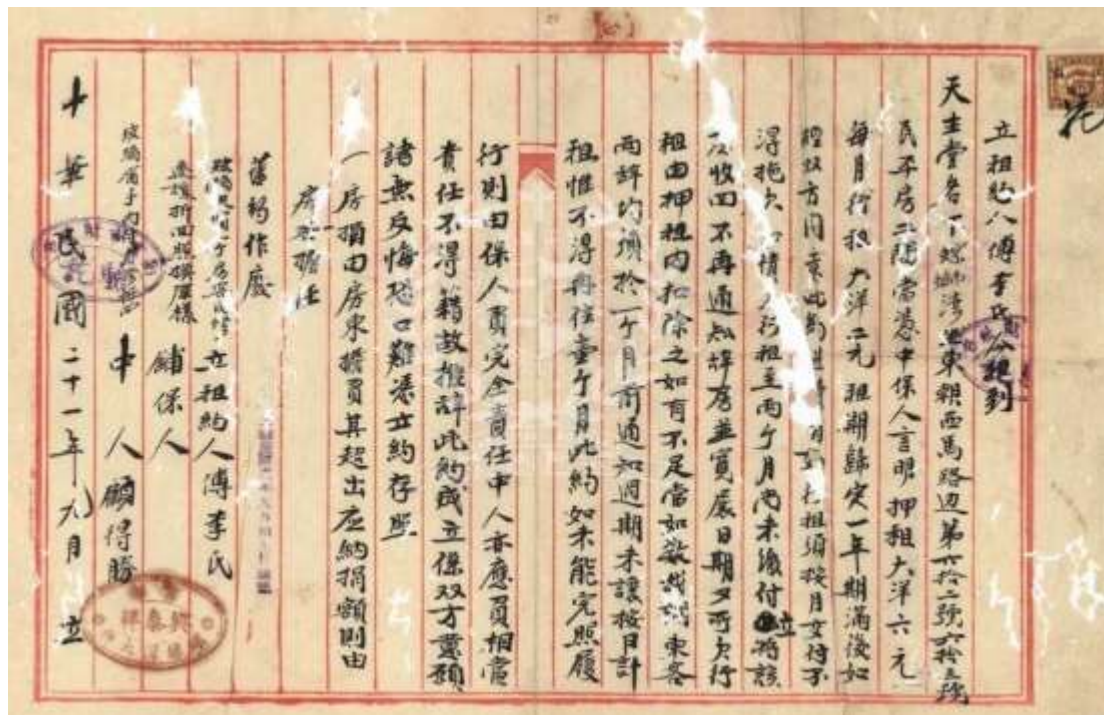 立租約人傅李氏今租到
天主堂名下螺螄灣坐東朝西馬路边第六拾二號六拾三號
民平房二間當憑中保人言明押租大洋六元
每月行租大洋二元租期歸定一年期滿後如
經双方同意此約租須按月交付不
得拖欠情欠行租至兩个月尚未繳付立將該
收回不再通知辞房並寬展日期夕所欠行
租由押租內扣除之如有不足當如数找東客
兩辞均須於一个月前通知週期未讓按月計
租惟不得再住壹个月此約如未能完照履
行則由保人負完全責任中人亦應負相當
責任不得藉故推辞此約成立係双方意願
諸無反悔恐口難憑立約存照
一房捐由房東擔負其超出应納捐額則由
房客擔任
舊約作廢
立租約人傅李氏
鋪保人
中人顧得勝
中華民國二十一年九月立